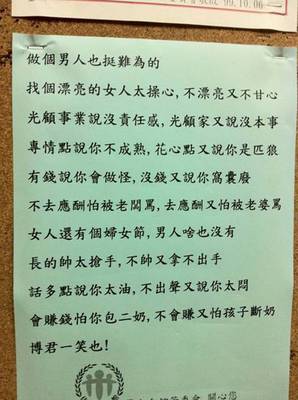 99.10.06
做個男人也挺難為的
找個漂亮的女人太操心,不漂亮又不甘心
光顧事業說沒責任感,光顧家又說沒本事
專情點說你不成熟,花心點又說你是匹狼
有錢說你會做怪,沒錢又說你窩囊廢
不去應酬怕被老闆罵,去應酬又怕被老婆罵
女人還有個婦女節,男人啥也沒有
長的帥太搶手,不帥又拿不出手
話多點說你太油,不出聲又說你太悶
會賺錢怕你包二奶,不會賺又怕孩子斷奶
博君一笑也!
委會 關心您